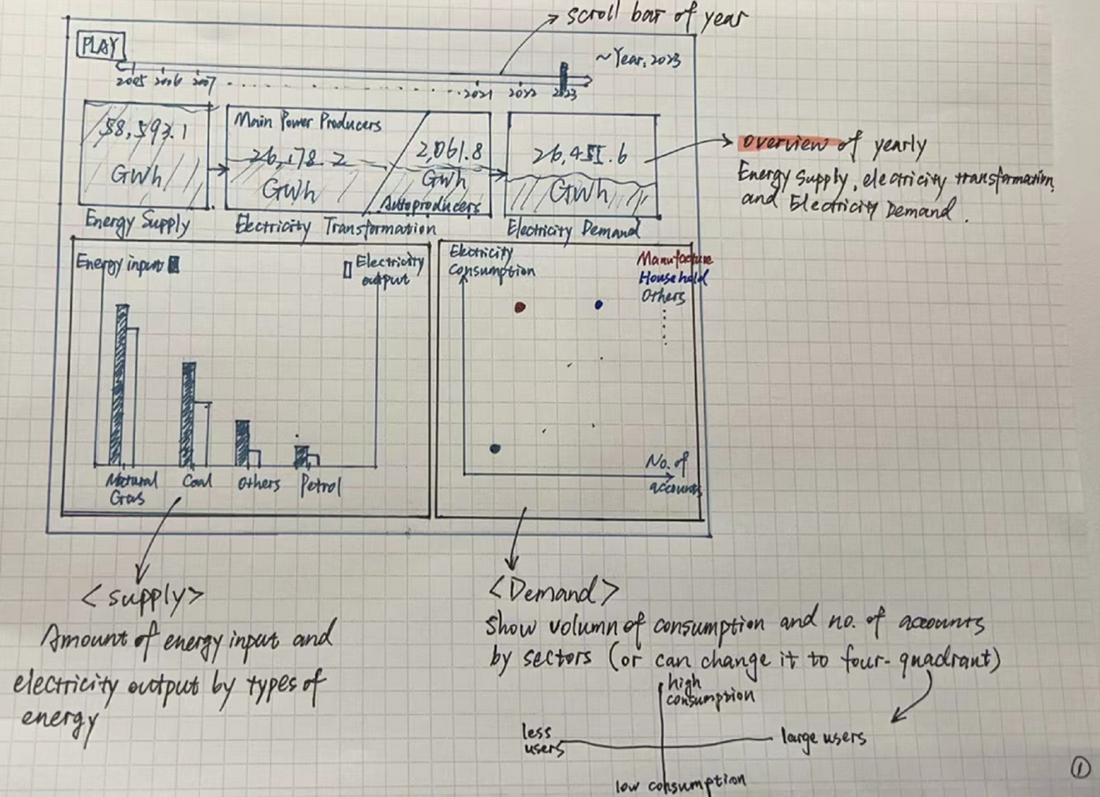 scroll bar of year
PLAY
~Year, 2023
2005 2006 2007 . . . . . . . . . . 2021 2022 2023
58,593.1
GWh
Energy Supply
Main Power Producers
26,178.2
GWh
2,061.8
GWh
Autoproducers
Electricity Transformation
GWh
Electricity Demand
overview of yearly
Energy Supply, electricity transformation,
and Electricity Demand.
Energy input
Electricity
output
Natural
Gas
Coal
Others
Petrol
Electricity
Consumption
Manufacture
Household
Others
No. of
accounts
<Supply>
Amount of energy input and
electricity output by types of
energy
<Demand>
Show volumn of consumption and no. of accounts
by sectors (or can change it to four-quadrant)
high
consumption
less
users
large users
low consumption
①